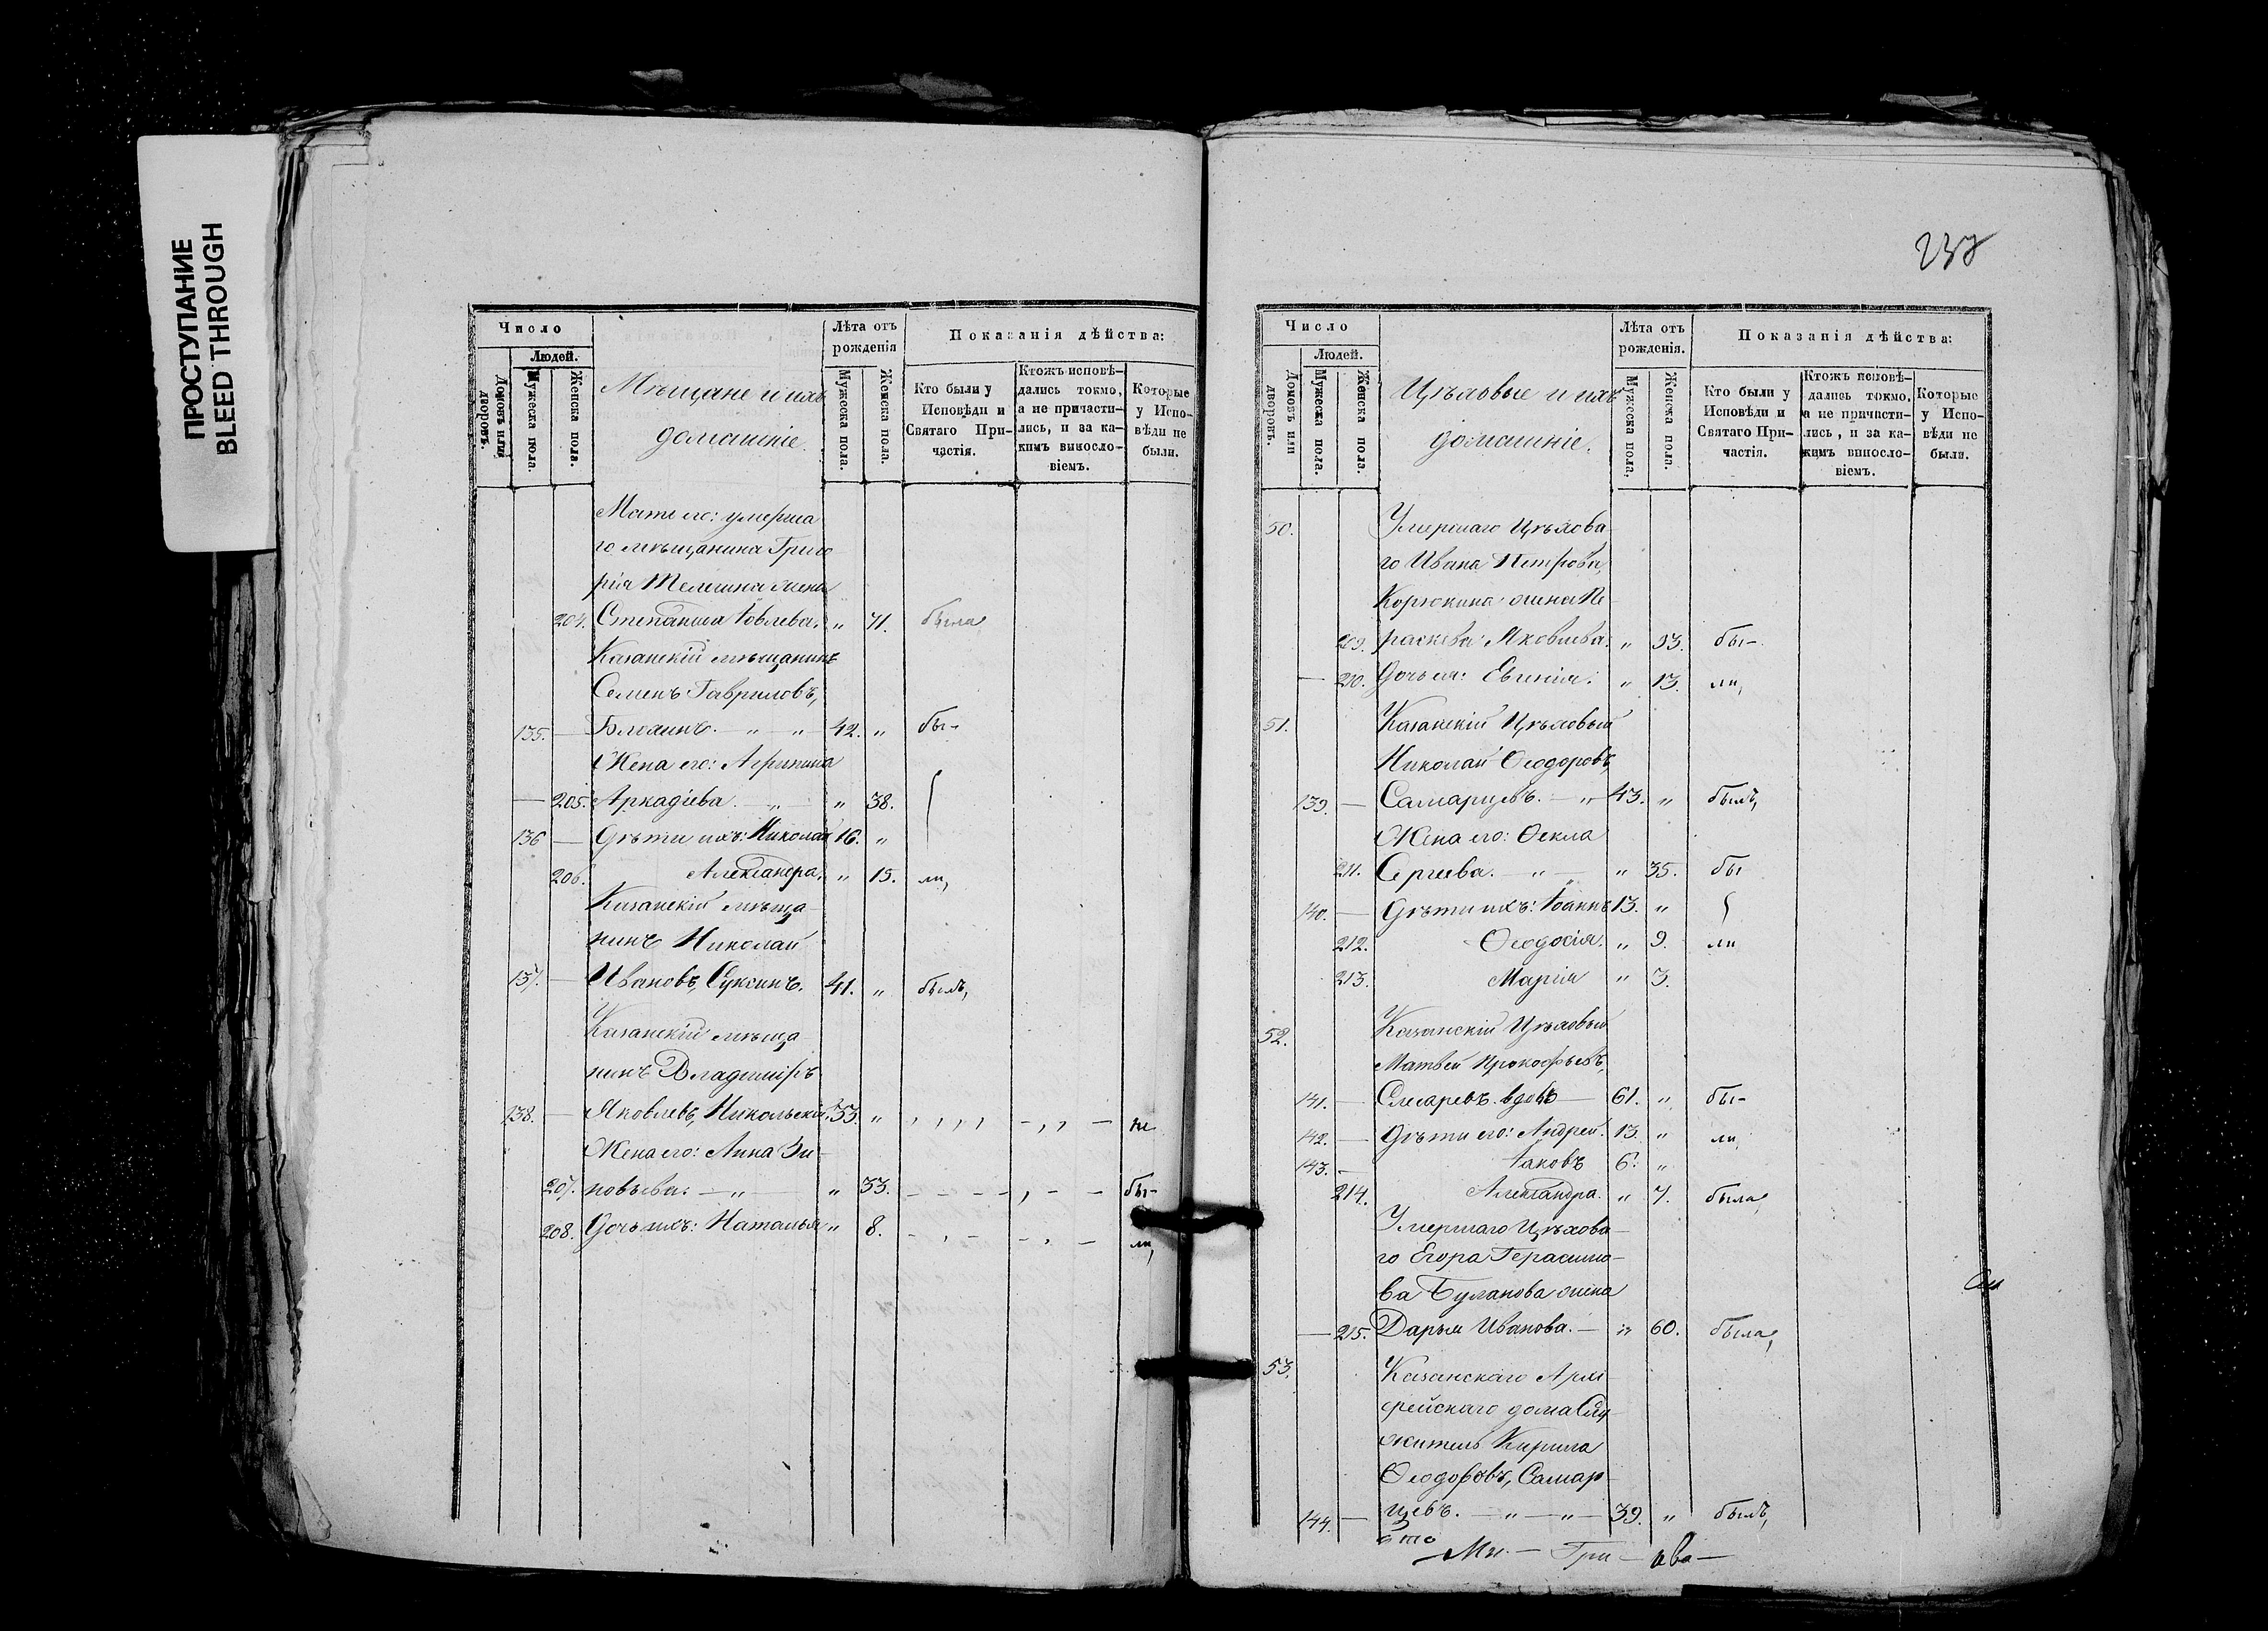 ПРОСТУПАНИЕ
BLEED THROUGH
Число
Людей.
Домовъ или дворовъ.
Мужеска пола.
Женска пола.
Мѣщане и ихъ
домашніе.
Лѣта отъ
рожденія
Мужеска пола.
Женска пола.
Показанія дѣйства:
Кто были у
Исповѣди и
Святаго При-
частія.
Ктожъ исповѣ-
дались токмо,
а не причасти-
лись, и за ка-
кимъ виносло-
віемъ.
Которые
у Испо-
вѣди не
были.
Мати его: умерша
го мѣщанина Григо
рія Телегина жена
204. Степанида Іовлева. " 71. была,
Казанскій мѣщанинъ
Семенъ Гавриловъ,
135. — — " — " 42. " бы-
Жена его: Агрипина
— 205. Аркадіева. — " — " 38.
136 — Дѣти ихъ: Николай 16. "
206. Александра. " 15. ли,
Казанскій мѣща-
нинъ Николай
137. — Ивановъ, Сукинъ. 41. " былъ,
Казанскій мѣща
нинъ Владиміръ
138. — Яковлевъ, Никольскій. 33. " не
Жена его: Анна Зи-
207. новьева. — " — " 33. бы-
208. Дочь ихъ: Наталья " 8. ли,
237
Число
Людей.
Домовъ или дворовъ.
Мужеска пола.
Женска пола.
Цѣховые и ихъ
домашніе.
Лѣта отъ
рожденія.
Мужеска пола.
Женска пола.
Показанія дѣйства:
Кто были у
Исповѣди и
Святаго При-
частія.
Ктожъ исповѣ-
дались токмо,
а не причасти-
лись, и за ка-
кимъ виносло-
віемъ.
Которые
у Испо-
вѣди не
были.
50. Умершаго Цѣхова-
го Ивана Петрова,
Корюкина жена Пе-
209. раскева Яковлева. " 53. бы-
— 210. Дочь ея: Евгенія. " 13. ли,
51. Казанскій Цѣховый
Николай Ѳеодоровъ,
139. — Самарцевъ. — " 43. " былъ,
Жена его: Ѳекла
211. Сергеева. — " — " 35. бы
140. — Дѣти ихъ: Іоаннъ 13. "
212. Ѳеодосія. " 9. ли
213. Марія " 3.
52. Казанскій Цѣховый
Матвей Прокофьевъ,
141. — Слесаревъ. вдовъ — 61. " бы-
142. — Дѣти его: Андрей. 13. " ли,
143. — Іаковъ 6. "
214. Александра. " 7. была,
Умершаго Цѣхова-
го Егора Герасимо-
ва Буланова жена
— 215. Дарья Иванова. — " 60. была,
53. Казанскаго Архі-
ерейскаго дома Слу-
житель Кирила
Ѳеодоровъ, Самар-
144. — цевъ. — " — " — 39. " былъ,